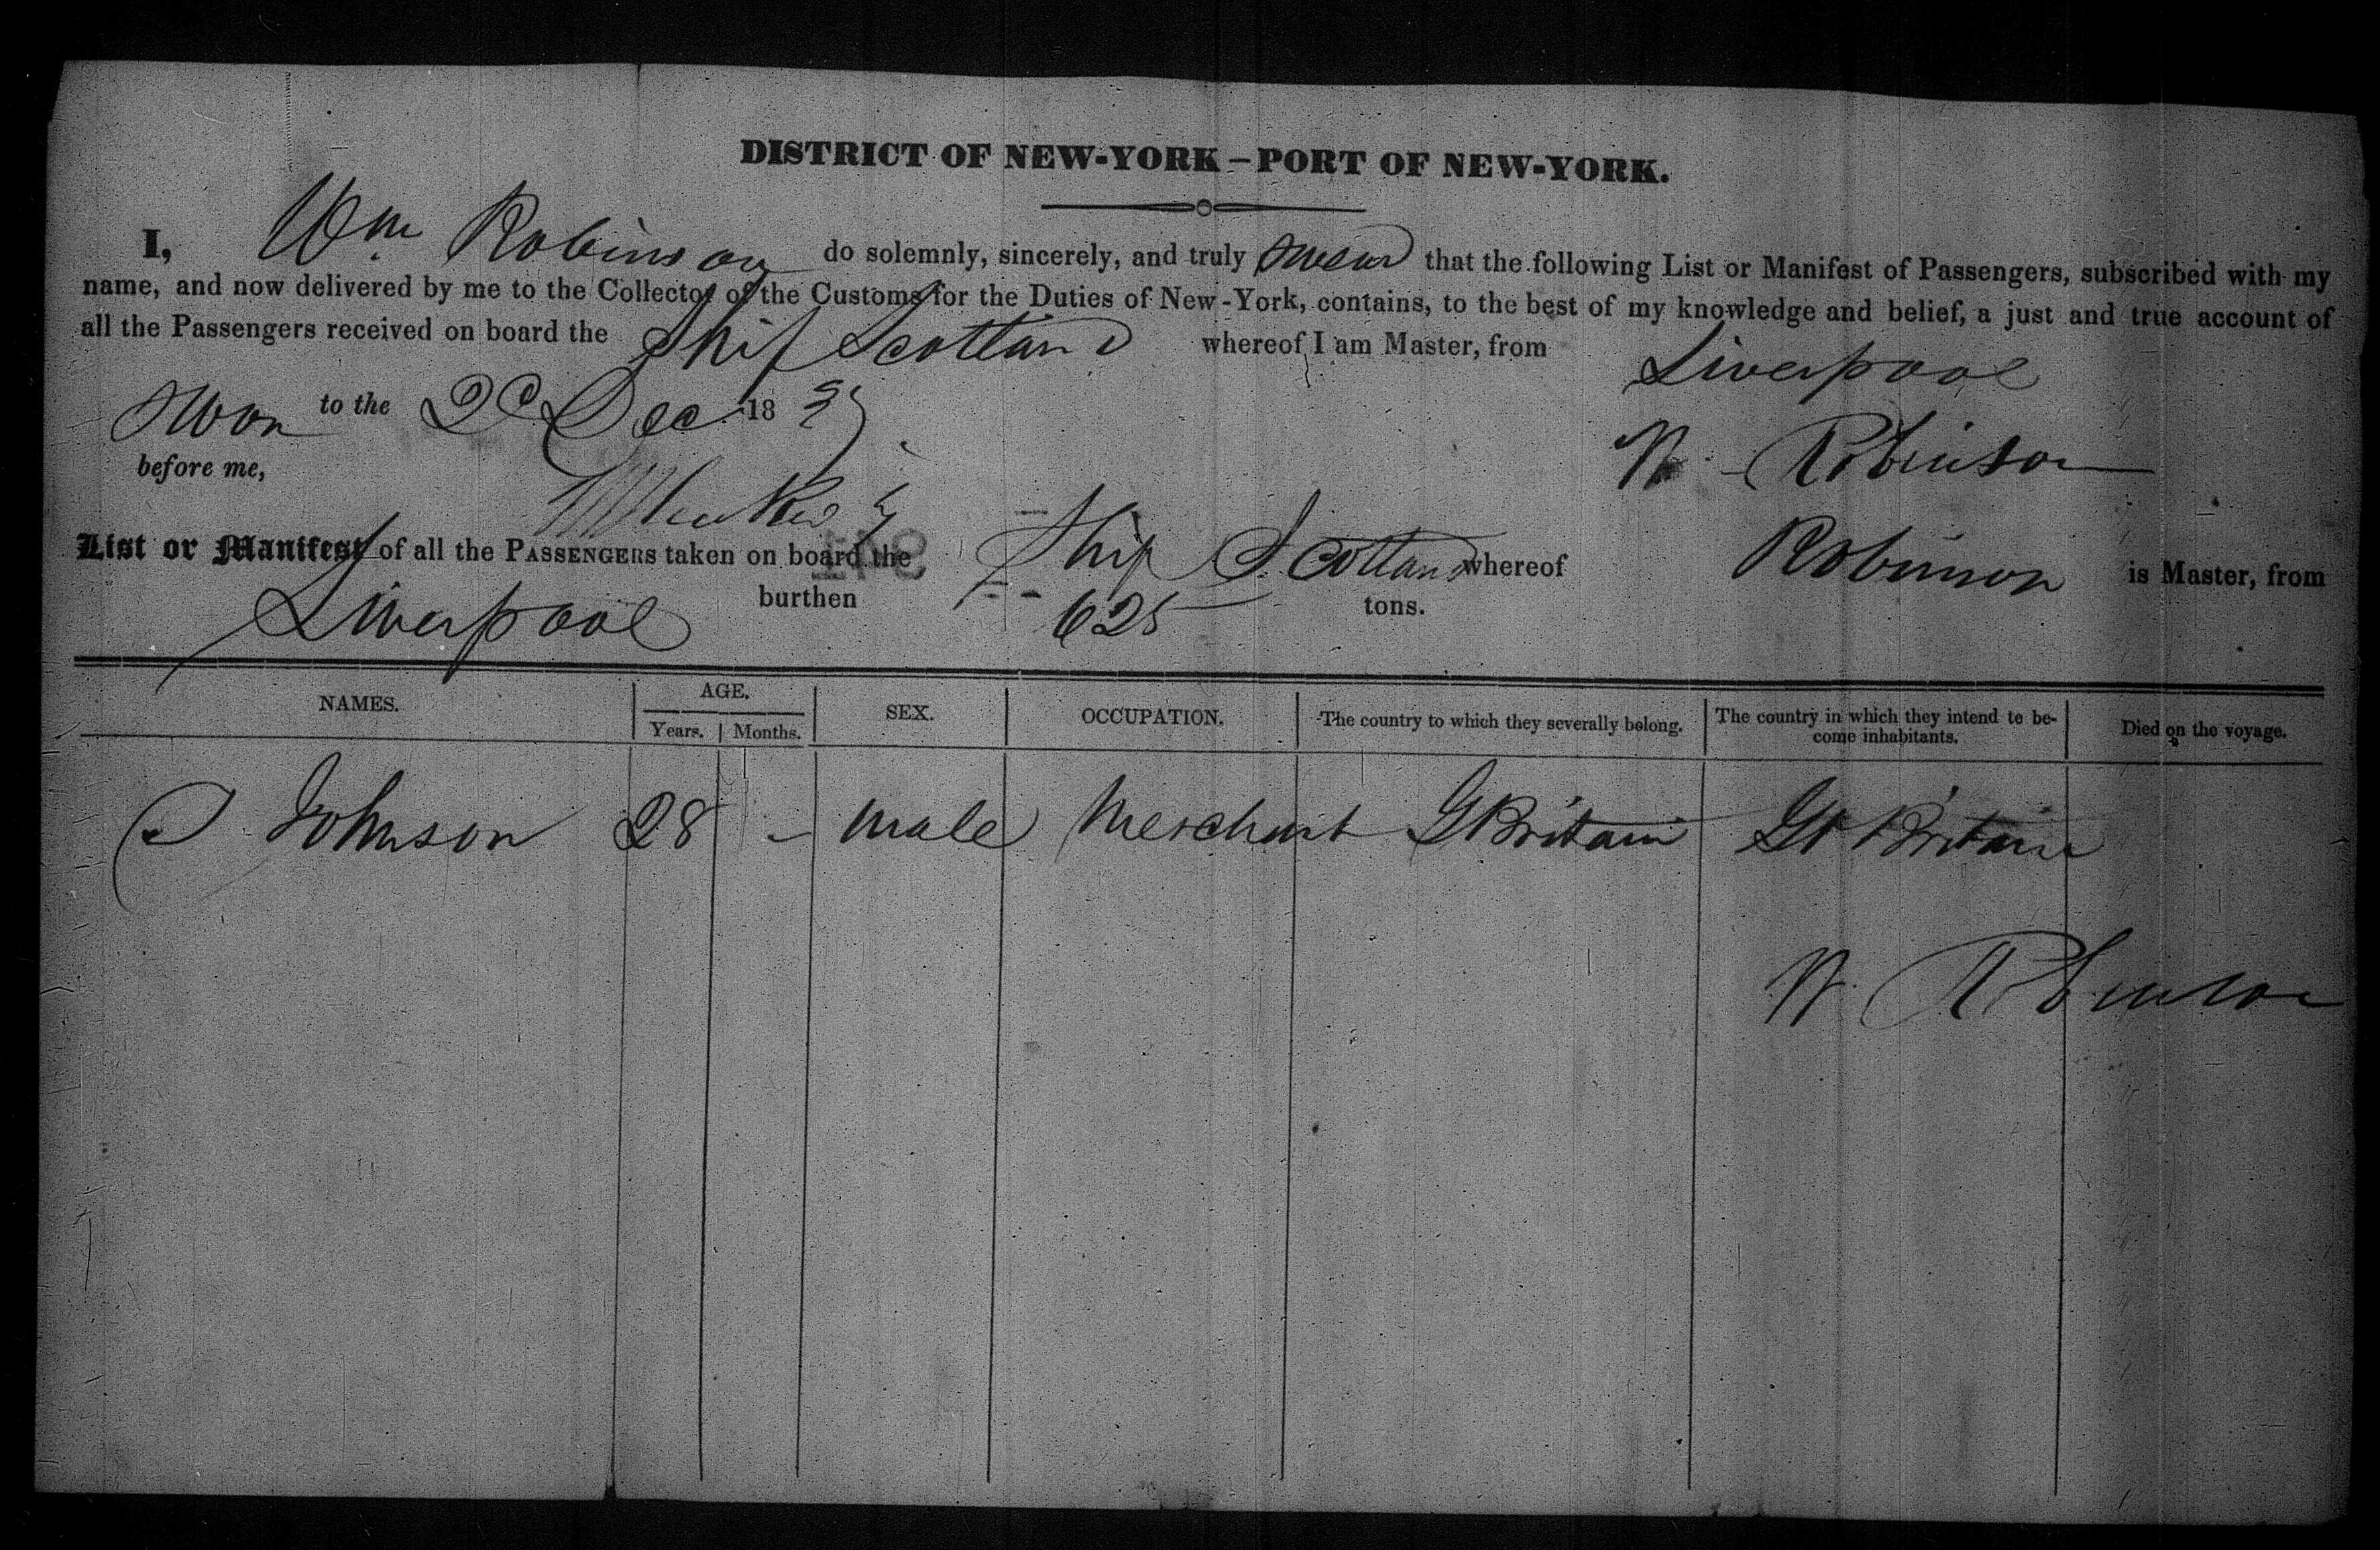 DISTRICT OF NEW-YORK – PORT OF NEW-YORK.
I, Wm Robinson do solemnly, sincerely, and truly swear that the following List or Manifest of Passengers, subscribed with my
name, and now delivered by me to the Collector of the Customs for the Duties of New-York, contains, to the best of my knowledge and belief, a just and true account of
all the Passengers received on board the Ship Scotland whereof I am Master, from Liverpool
Swon to the 2d Dec 18
W Robinson
before me,
List or Manifest of all the PASSENGERS taken on board the Ship Scotland whereof Robinson is Master, from
Liverpool burthen 625 tons.
NAMES. AGE. SEX. OCCUPATION. The country to which they severally belong. The country in which they intend to be-
come inhabitants. Died on the voyage.
Years. Months.
Johnson 28 - male Merchant Gt Britain Gt Britain
W. Robinson